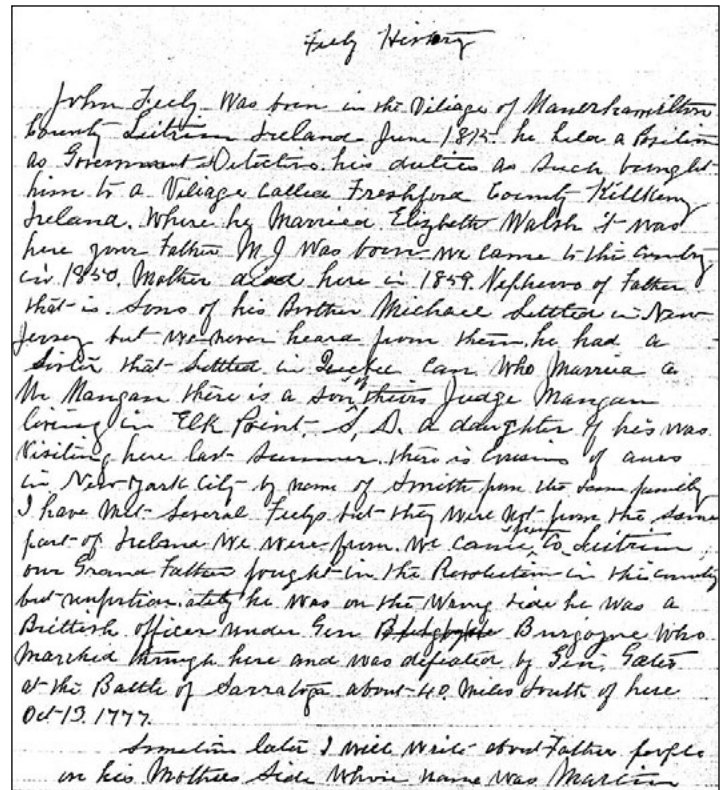 Feely History
John Feely Was born in the Viliage of Manerhamilton
County Leitrim Ireland June 1815. he held a Position
as Government Detective his duties as such brought
him to a Viliage Called Freshford County Killkeny
Ireland. Where he Married Elizbeth Walsh it was
here your Father M J Was born we came to this Cuntry
in 1850. Mother died here in 1859. Nephews of Father
that is. Sons of his Brother Michael Settled in New
Jersey but we never heard from them. he had a
Sister that Settled in Can Who Married a
Mr Mangan there is a Son of theirs Judge Mangan
living in Elk Point, S, D. a daughter of his was
Visiting here last Summer. there is Cusins of ours
in New York City by name of Smith from the Same family
I have Met Several Feelys but they were Not from the Same
part of Ireland We were from. We came from Co Leitrim
our Grand Father fought in the Revolution in this cuntry
but unfortionately he was on the Wrong side he was a
Brittish officer under Gen Burgoyne Who
Marched through here and was defeated by Gen, Gates
at the Battle of Sarratoga about 40 Miles South of here
Oct 13. 1777.
Sometime later I will write about Father people
on his Mothers Side Whose name was Martin